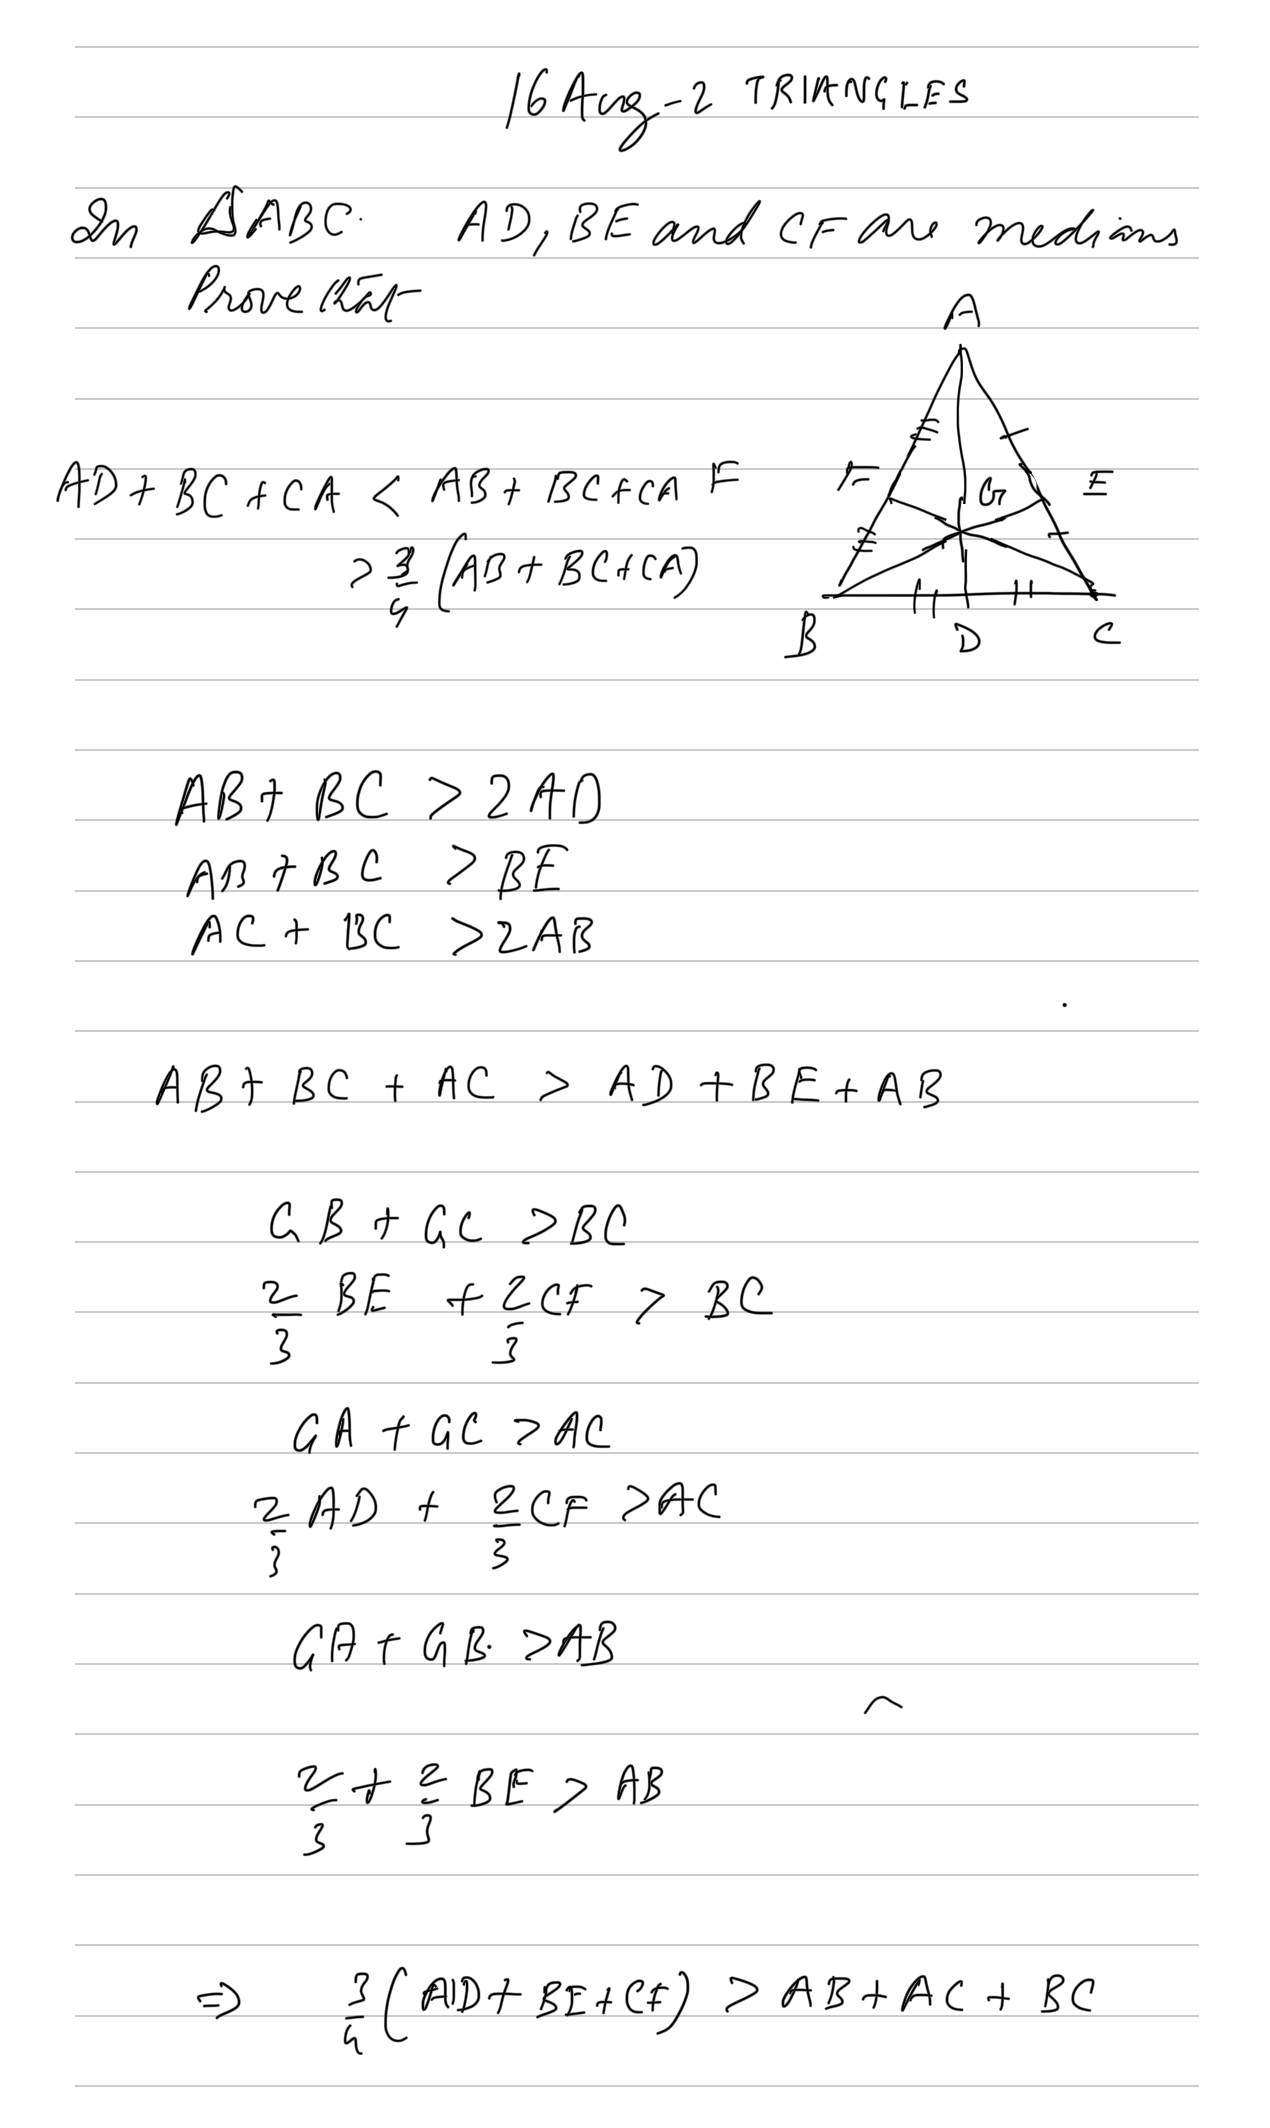 16 Aug-2 TRIANGLES
In ΔABC. AD, BE and CF are medians
Prove that
A
AD + BC + CA < AB + BC + CA F
F
G
E
> 3/4 (AB + BC + CA)
B
D
C
AB + BC > 2 AD
AB + BC > BE
AC + BC > 2 AB
AB + BC + AC > AD + BE + AB
GB + GC > BC
2/3 BE + 2/3 CF > BC
GA + GC > AC
2/3 AD + 2/3 CF > AC
GA + GB. > AB
2/3 + 2/3 BE > AB
⇒ 3/4 (AD + BE + CF) > AB + AC + BC